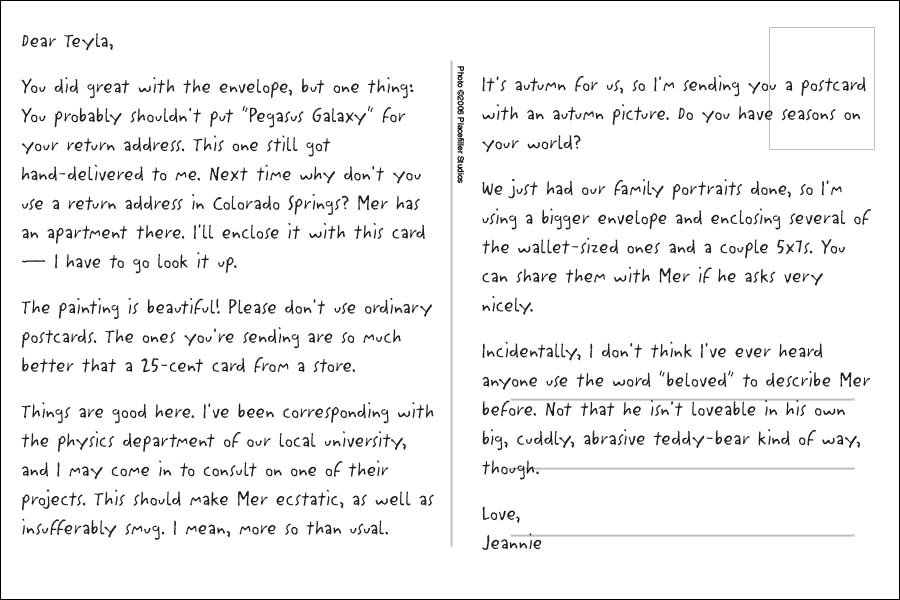 Dear Teyla,
You did great with the envelope, but one thing:
You probably shouldn't put "Pegasus Galaxy" for
your return address. This one still got
hand-delivered to me. Next time why don't you
use a return address in Colorado Springs? Mer has
an apartment there. I'll enclose it with this card
— I have to go look it up.
The painting is beautiful! Please don't use ordinary
postcards. The ones you're sending are so much
better that a 25-cent card from a store.
Things are good here. I've been corresponding with
the physics department of our local university,
and I may come in to consult on one of their
projects. This should make Mer ecstatic, as well as
insufferably smug. I mean, more so than usual.
Photo ©2006 Placefiller Studios
It's autumn for us, so I'm sending you a postcard
with an autumn picture. Do you have seasons on
your world?
We just had our family portraits done, so I'm
using a bigger envelope and enclosing several of
the wallet-sized ones and a couple 5x7s. You
can share them with Mer if he asks very
nicely.
Incidentally, I don't think I've ever heard
anyone use the word "beloved" to describe Mer
before. Not that he isn't loveable in his own
big, cuddly, abrasive teddy-bear kind of way,
though.
Love,
Jeannie